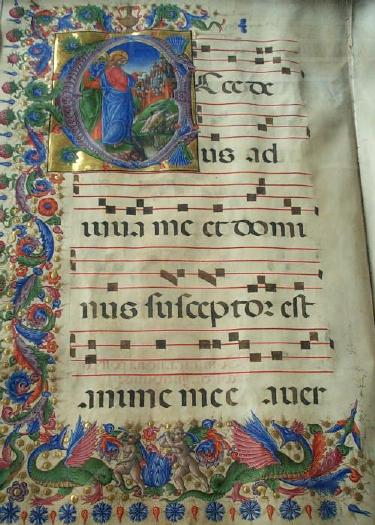 ECce de
us ad
iuua me et domi
nus suſceptor eſt
anime mee auer